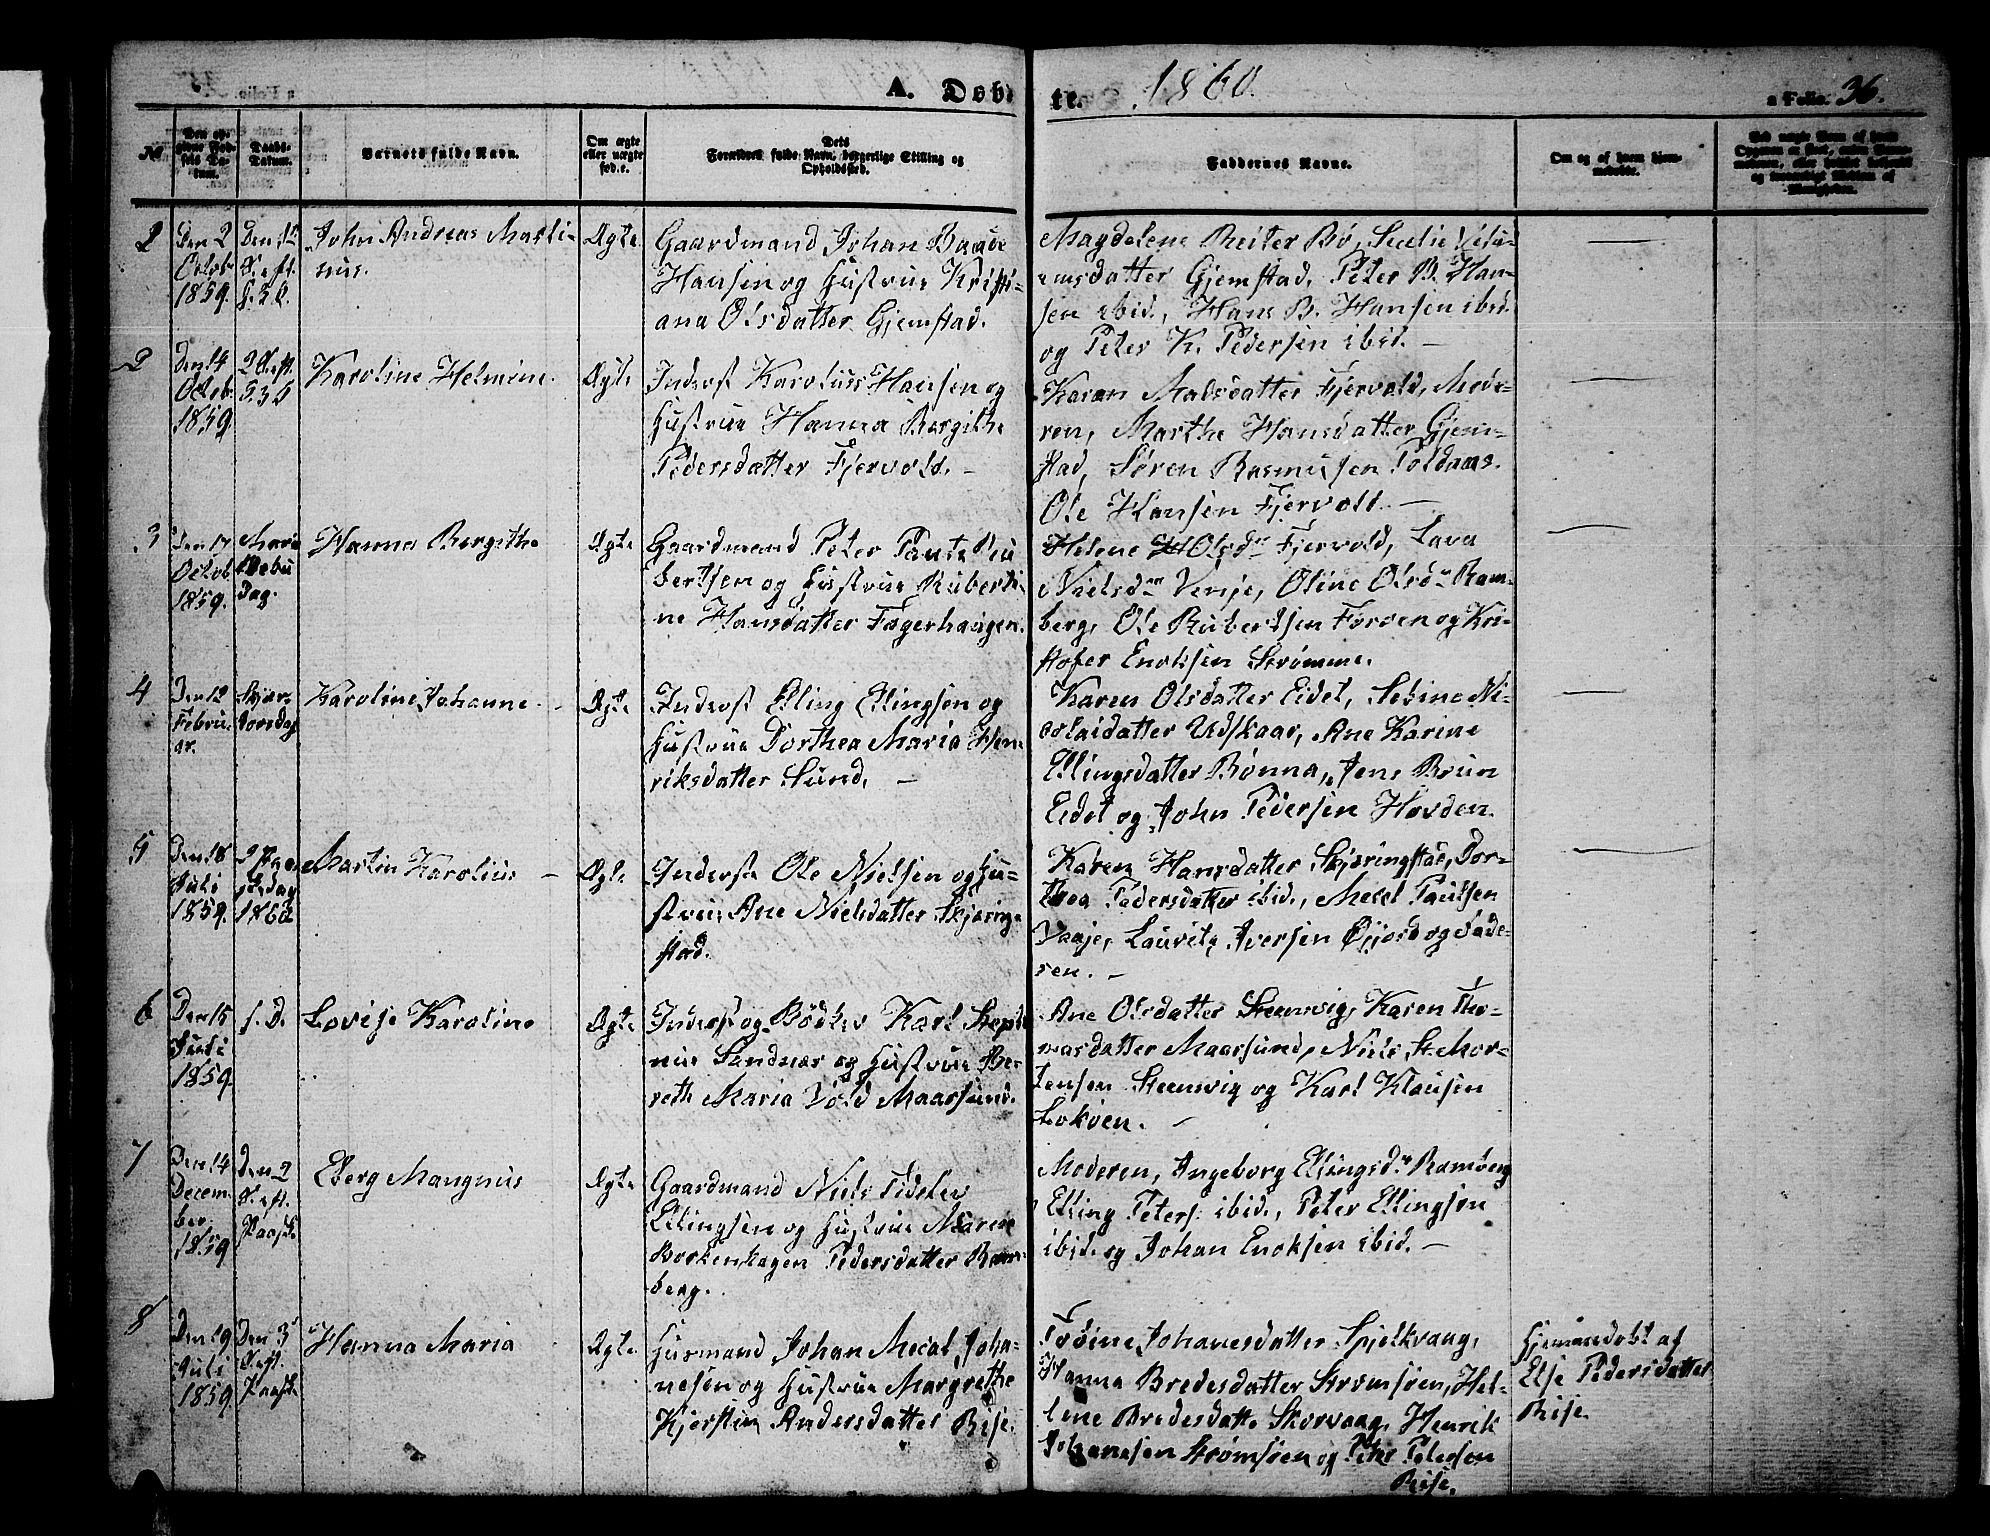 A. Døbte. 1860. a Folio. 36.
No
Den opgivne Fødsels Datum.
Daabs-Datum.
Barnets fulde Navn.
Om ægte eller uægte født.
Dets Forældres fulde Navn, borgerlige Stilling og Opholdssted.
Faddernes Navne.
Om og af hvem hjemmedøbt.
2
Den 2 Octob. 1859.
John Andreas Martinus.
Ægte
Gaardmand Johan Baade
Hansen og Hustrue Kristi-
ana Olsdatter Gjemstad.
Magdelene Reiter Bø,
Gjemstad, Peter B. Han-
sen ibid., Hans B. Hansen ibid.
og Peter K. Pedersen ibid. —
2
Den 14 Octob. 1859
Karoline Helmine.
Ægte
Inderst Karolius Hansen og
Hustrue Hanna Bergithe
Pedersdatter Fjervold. —
Karen Madsdatter Fjervold, Mode-
ren, Marthe Hansdatter Gjem-
stad, Søren Rasmussen Poldaas.
Ole Hansen Fjervold. —
3
Den 17 Octob 1859.
Maria Bebu Dag.
Hanna Bergithe
Ægte
Gaardmand Peter Pauts Ru
bertsen og Hustrue Ruberti-
ne Hansdatter Fagerhaugen.
Helene Olsdtr Fjervold, Lava
Nielsdtr Venje, Oline Olsdtr Ram-
berg, Ole Rubertsen Forøen og Kri-
stofer Enoksen Strømme.
4
Den 12 Febru-ar.
Skjær-torsdag
Karoline Johanne
Ægte
Inderst Elling Ellingsen og
Hustrue Dorthea Maria Hen-
riksdatter Sund. —
Karen Olsdatter Eidet, Sebine Ni-
colaidatter Udskaar, Ane Karine
Ellingsdatter Bønna, Jens Brun
Eidet og John Pedersen Hovden.
5
Den 18 Juli 1859.
2 Paaskedag 1860
Martin Karolius —
Ægte
Inderst Ole Nielsen og Hu-
strue Ane Nielsdatter Skjæring-
stad.
Karen Hansdatter Skjæringstad, Dor-
thea Pedersdatter ibid., Mekel Paulsen
Vaaje, Lauritz Iversen Øijord og Fade-
ren. —
6
Den 15 Juli 1859.
s. D.
Lovise Karoline
Ægte
Inderst og Bødker Karl
Sandnæs og Hustrue Be-
reth Maria Vold Maarsund.
Ane Olsdatter Steenvig, Karen Tho-
masdatter Maarsund, Niels St. Mor-
tensen Steenvig og Karl Klausen
Lokøen. —
7
Den 14 Decem-ber, 1859
Den 2 S. eft. Paaske
Eberg Mangnus
Ægte
Gaardmand Niels Fideler
Ellingsen og Hustrue Maren
Borkenhagen Pedersdatter Ram-
berg.
Moderen, Ingeborg Ellingsdtr Ramberg
Elling Peters: ibid., Peter Ellingsen
ibid. og Johan Enoksen ibid. —
8
Den 19 Juli 1859
Den 3 S. eft. Paaske
Hanna Maria
Ægte
Husmand Johan Mecal Joha-
nesen og Hustrue Margrethe
Kjerstine Andersdatter Rise.
Johanesdatter Spjelkvaag,
Hanna Bredesdatter Strømsøen, Hel-
lene Bredesdatt. Skorvaag, Henrik
Johannesen Strømsøen og Peter Pedersen
Rise.
Hjemmedøbt af
Else Pedersdatter
Rise.